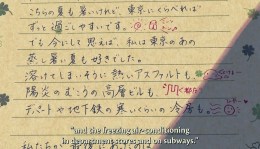 こちらの夏も暑いけれど、東京にくらべれば
ずっと過ごしやすいです。
でも今にして思えば、私は東京のあの
蒸し暑い夏も好きでした。
溶けてしまいそうに熱いアスファルトも、
陽炎のむこうの高層ビルも、
デパートや地下鉄の寒いくらいの冷房も。
"and the freezing air-conditioning
in department stores and on subways."